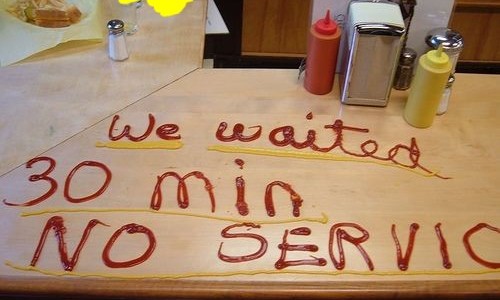 We waited
30 min
NO SERVIC